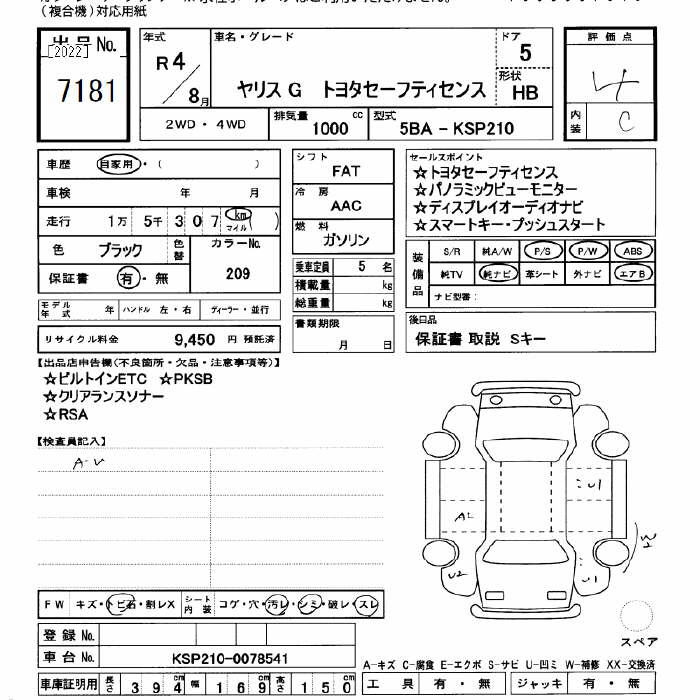 (複合機)対応用紙
出品No. [2022] 7181
年式 R4/8月
車名・グレード ヤリス G トヨタセーフティセンス
ドア 5
形状 HB
評価点 4
内装 C
2WD・4WD
排気量 1000 cc
型式 5BA - KSP210
車歴 自家用・( )
車検 年 月
走行 1万 5千 3 0 7 km マイル ( )
色 ブラック 色替 カラーNo. 209
保証書 有・無
モデル年式 年 ハンドル 左・右 ディーラー・並行
リサイクル料金 9,450 円 預託済
シフト FAT
冷房 AAC
燃料 ガソリン
乗車定員 5 名
積載量 kg
総重量 kg
書類期限 月 日
セールスポイント
☆トヨタセーフティセンス
☆パノラミックビューモニター
☆ディスプレイオーディオナビ
☆スマートキー・プッシュスタート
装備品 S/R 純A/W P/S P/W ABS
純TV 純ナビ 革シート 外ナビ エアB
ナビ型番:
後日品
保証書 取説 Sキー
【出品店申告欄(不良箇所・欠品・注意事項等)】
☆ビルトインETC ☆PKSB
☆クリアランスソナー
☆RSA
【検査員記入】
A-U
U1
AL
W2
U2
U1
FW キズ・トビ石・割レX シート内装 コゲ・穴・汚レ・シミ・破レ・スレ
登録No.
車台No. KSP210-0078541
スペア
A-キズ C-腐食 E-エクボ S-サビ U-凹ミ W-補修 XX-交換済
車庫証明用 長さ 394 cm 幅 169 cm 高さ 150 cm
工具 有・無 ジャッキ 有・無